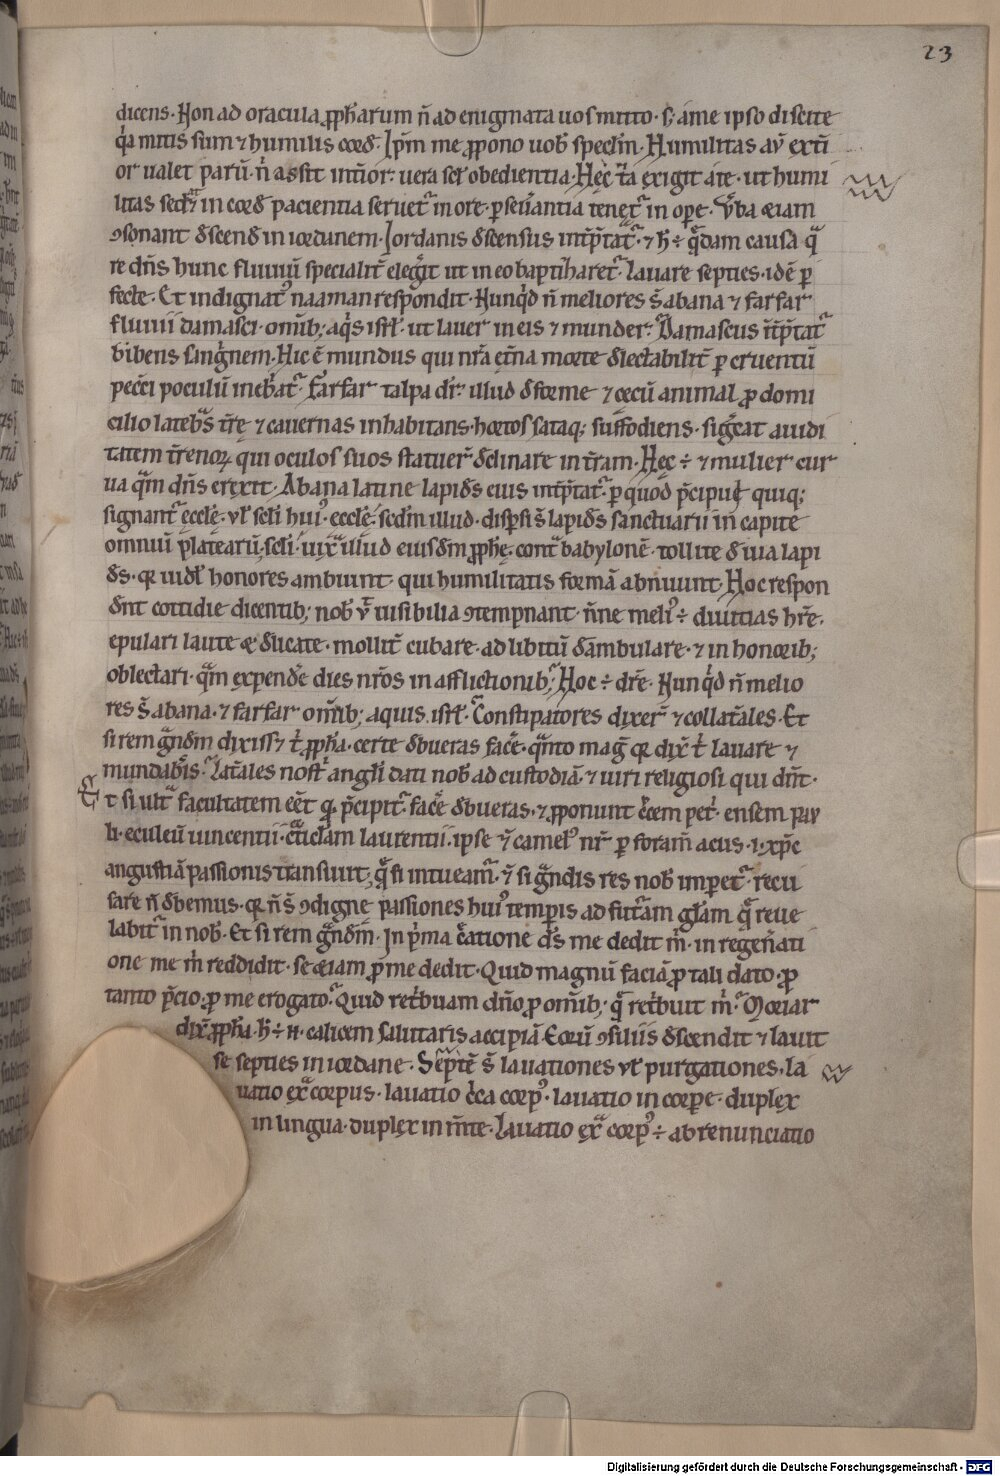 23
dicens. Non ad oracula ꝓph̄arum n̄ ad enigmata uos mitto. s; a me ipso discite
q̇a mitis sum ⁊ humilis cord̄. Ip̄m me ꝓpono uob̄ specl̄m. Humilitas aū ext̄i
or ualet parū. n̄ assit int̄ior. uera scł obedientia. Hec t̄a exigit a te. ut humi
litas sect᷑ in cord̄ pacientia seruet᷑ in ore. ꝑseu̾antia tenet᷑ in oꝑe. V̾ba etiam
ꝯsonant dͤscend̄ in iordanem. Iordanis dͤscensus int̾p̄tat᷑. ⁊ h̄ ÷ q̄dam causa q̄
re dn̄s hunc fluuiū specialit̾ elegit ut in eo baptiharet᷑. lauare septies. idē ꝑ
fecte. Et indignatꝰ naaman respondit. Nunq̇d n̄ meliores s̄ abana ⁊ farfar
fluuii damasci. om̄ib; aq̇s isrł. ut lauer in eis ⁊ munder. Damascus int̾p̄tat᷑
bibens sanguinem. Hic ē mundus qui nr̄a et̾na morte dͤlectabilit̾ ꝑ cruentū
pecc̄i poculū inebriat᷑. Farfar talpa dr̄. illud dͤforme ⁊ cecū animal ꝓ domi
cilio latebᷓs t̾re ⁊ cauernas inhabitans. hortos sataq; suffodiens. sig̾cat auidi
tatem t̾renoꝝ qui oculos suos statuer̄ dͤclinare in t̾ram. Hec ÷ ⁊ mulier cur
ua qᷓm dn̄s erexit. Abana latine lapidͤs eius int̾p̄tat᷑. ꝑ quod p̄cipui quiq;
signant᷑ eccłe. uł scl̄i huiꝰ eccłe. scd̄m illud. disꝑsi s̄ lapidͤs sanctuarii in capite
omniū platearū. scl̄i. iuxᷓ illud eiusdͤm ꝓph̄e. contᷓ babylonē. tollite dͤ uia lapi
dͤs. qꝛ uidͤł honores ambiunt. qui humilitatis formā abnuunt. Hoc respon
dͤnt cottidie dicentib; nob̄ v̄ uisibilia ꝯtempnant. n̄ne meliꝰ ÷ diuitias hr̄e.
epulari laute et dͤlicate. mollit̾ cubare. ad libitū dͤambulare. ⁊ in honorib;
oblectari. qᷓm expendͤe dies nr̄os in afflictionib;. Hoc ÷ dr̄e. Nunq̇d n̄ melio
res s̄ abana. ⁊ farfar om̄ib; aquis isrł. Constipatores dixer̄ ⁊ collat̾ales. Et
si rem gᷓndͤm dixiss; t̄ ꝓph̄a. certe dͤbueras fac̾e. qᷓnto mag̾ qꝛ dix̄ t̄ lauare ⁊
mundab̾is. Lat̾ales nost̾ angl̄i dati nob̄ ad custodiā. ⁊ uiri religiosi qui dn̄t.
Et si ultᷓ facultatem eēt qᷓ p̄cipit᷑ fac̾e dͤbueras. ⁊ ꝓponunt c̾cem pet̾. ensem pau
li. eculeū uincentii. craticlam laurentii. ipse ē camelꝰ nr̄ ꝑ foram̄ acus. i. xp̄c
angustiā passionis transiuit, qᷓ si intueam᷑. ⁊ si gᷓndis res nob̄ imꝑet᷑ recu
sare n̄ dͤbemus. qꝛ n̄ s̄ ꝯdigne passiones huiꝰ tempꝑis ad futᷓam gl̄am qᷓ reue
labit᷑ in nob̄. Et si rem gᷓndͤm. In p̄ma c̾atione dͤs me dedit m̄. in regen̾ati
one me m̄ reddidit. se etiam ꝓ me dedit. Quid magnū faciā ꝓ tali dato. ꝓ
tanto p̄cio. ꝓ me erogato. Quid ret̾buam dn̄o ꝓ om̄ib; qᷓ ret̾buit m̄. Moriar
dix̄ ꝓph̄a. h̄ ÷ n̄. calicem salutaris accipiā. Eorū ꝯsiliis dͤscendit ⁊ lauit
se septies in iordane. Septē s̄ lauationes uł purgationes. la
uatio extᷓ corpus. lauatio c̾ca corpꝰ. lauatio in corpore. duplex
in lingua. duplex in m̄te. Lauatio exᷓ corpꝰ ÷ abrenunciatio
Digitalisierung gefördert durch die Deutsche Forschungsgemeinschaft - DFG